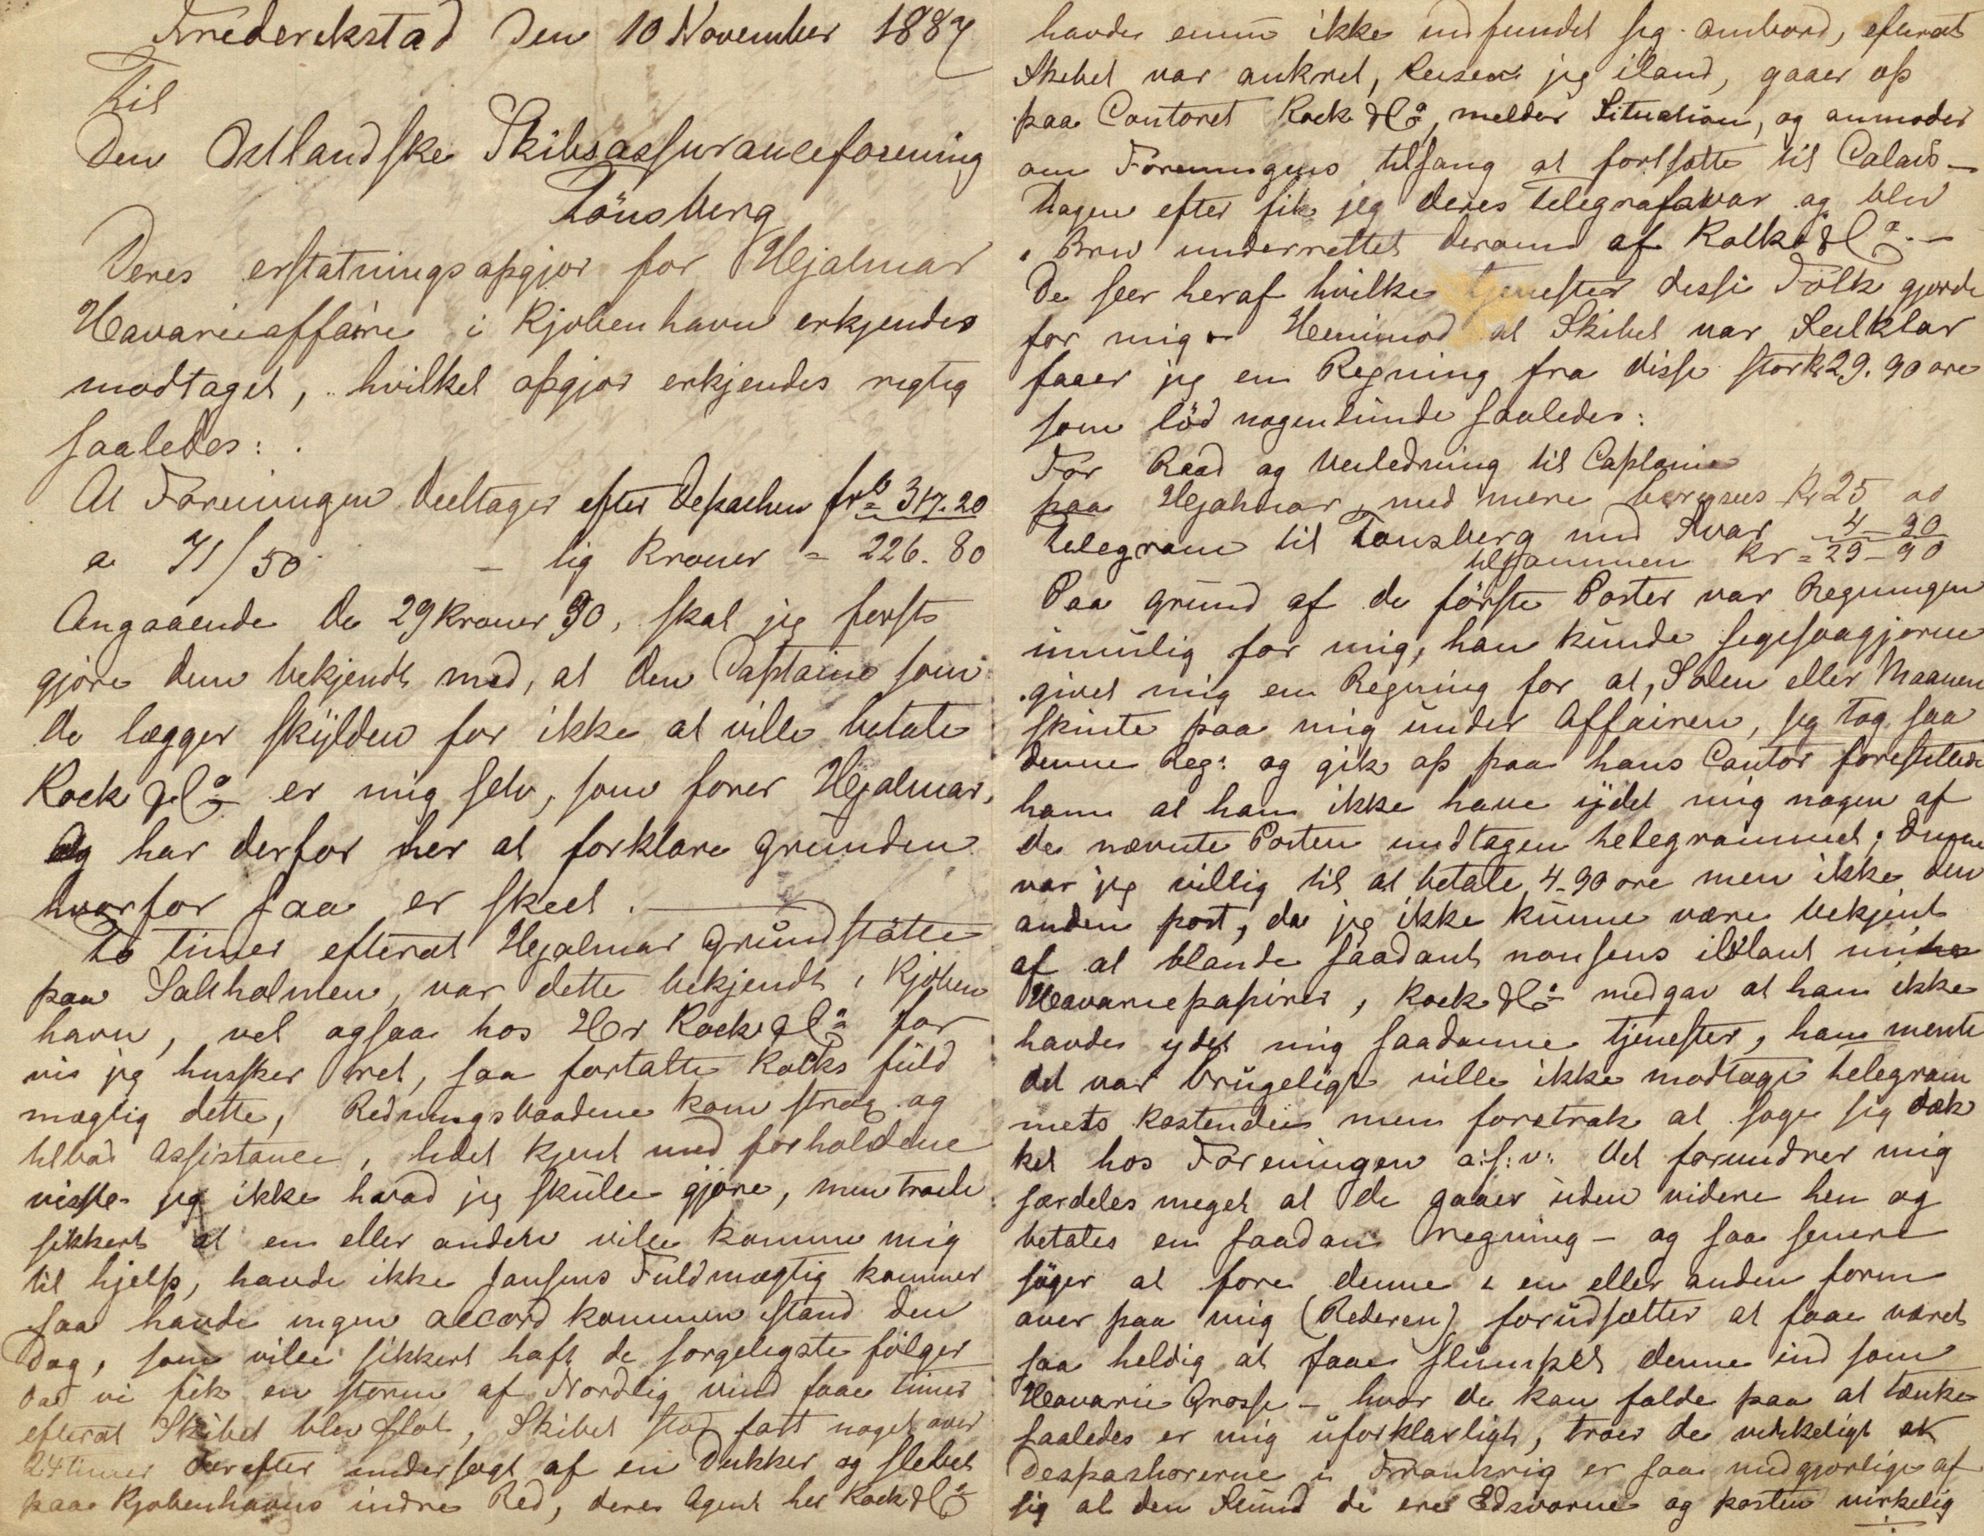 Frederekstad Den 10 November 1887
Til
Den Østlandske Skibsassuranceforening
Tönsberg
Deres erstatningsopgjør for Hjalmar
Havarieaffaire i Kjøbenhavn erkjendes
modtaget, hvilket opgjør erkjendes rigtig
saaledes:
At Foreningen deeltager efter Depachen frc = 317.20
a 71/50 – lig Kroner = 226.80
Angaaende de 29 kroner 90, skal jeg først
gjøre dem bekjendt med, at den Captaine som
de lægger skÿlden for ikke at ville betale
Rock & Co er mig selv, som fører Hjalmar,
og har derfor her at forklare grunden
hvorfor saa er skeet.
To Timer efterat Hjalmar grundstötte
paa Saltholmen, var dette bekjendt i Kjøben
havn, vel ogsaa hos Hr Rock & Co for
vis jeg husker ret, saa fortalte Rocks fuld
mægtig dette, Redningsbaadene kom strax og
tilbød Assistance, lidet kjent med forholdene
viste jeg ikke hvad jeg skulle gjöre, men troede
sikkert at en eller anden ville komme mig
til hjelp, havde ikke Jansens Fuldmægtig kommer
saa havde ingen accord kommen istand den
Dag, som ville sikkert haft de sørgeligste fölger
da vi fik en storm af Nordlig vind faae timer
efterat Skibet blev flot, Skibet stod fast noget over
24 timer derefter undersøgt af en Dykker og slebet
paa Kjøbenhavns indre Red, deres Agent her Rock & Co
havde ennu ikke indfundet sig ombord, efterat
Skibet var ankret, Reiser jeg iland, gaaer op
paa Contoret Rock & Co, melder Situation, og anmoder
om Foreningens tilsang at fortsøtte til Calais –
Dagen efter fik jeg deres Telegrafsvar og blev
i Brev underrettet derom af Rolk & Co. –
De seer heraf hvilke tjenester disse Folk gjorde
for mig – Henimod at Skibet var Seilklar
faaer jeg en Regning fra disse stor kr 29.90 øre
som löd nogenlunde saaledes:
For Raad og Veiledning til Captaine
paa Hjalmar med mere beregnes Kr 25 00
Telegram til Tønsberg med Svar 4–90
tilsammen Kr = 29–90
Paa grund af de første Poster var Regningen
umulig for mig, han kunde ligesaagjerne
givet mig en Regning for at, Solen eller Maanen
skinte paa mig under Affairen, jeg tog saa
denne Reg: og gik op paa hans Contor forestillede
ham at han ikke have ÿdet mig nogen af
de nævnte Poster undtagen telegrammet; Denne
var jeg villig til at betale, 4–90 øre men ikke den
anden post, da jeg ikke kunne være bekjent
af at blande saadant nonsens iblant mine
Havariepapirer, Rock & Co medgav at han ikke
havde ydet mig saadanne tjenester, han mente
det var brugeligt ville ikke modtage telegram
mets kostende men foretrak at søge sig dæk
ket hos Foreningen o:s:v: Det forundrer mig
særdeles meget at de gaaer uden videre hen og
betales en saadan regning – og saa senere
söger at føre denne i en eller anden form
over paa mig (Rederen) forudsætter at faae været
saa heldig at faae slumpet denne ind som
Havarie Grosse – hvor de kan falde paa at tænke
saaledes er mig uforklarligt, troer de virkeligt at
Despashørerne i Frankrig er saa medgjørlige af
sig at den Stund de ere Edsvorne og posten virkelig